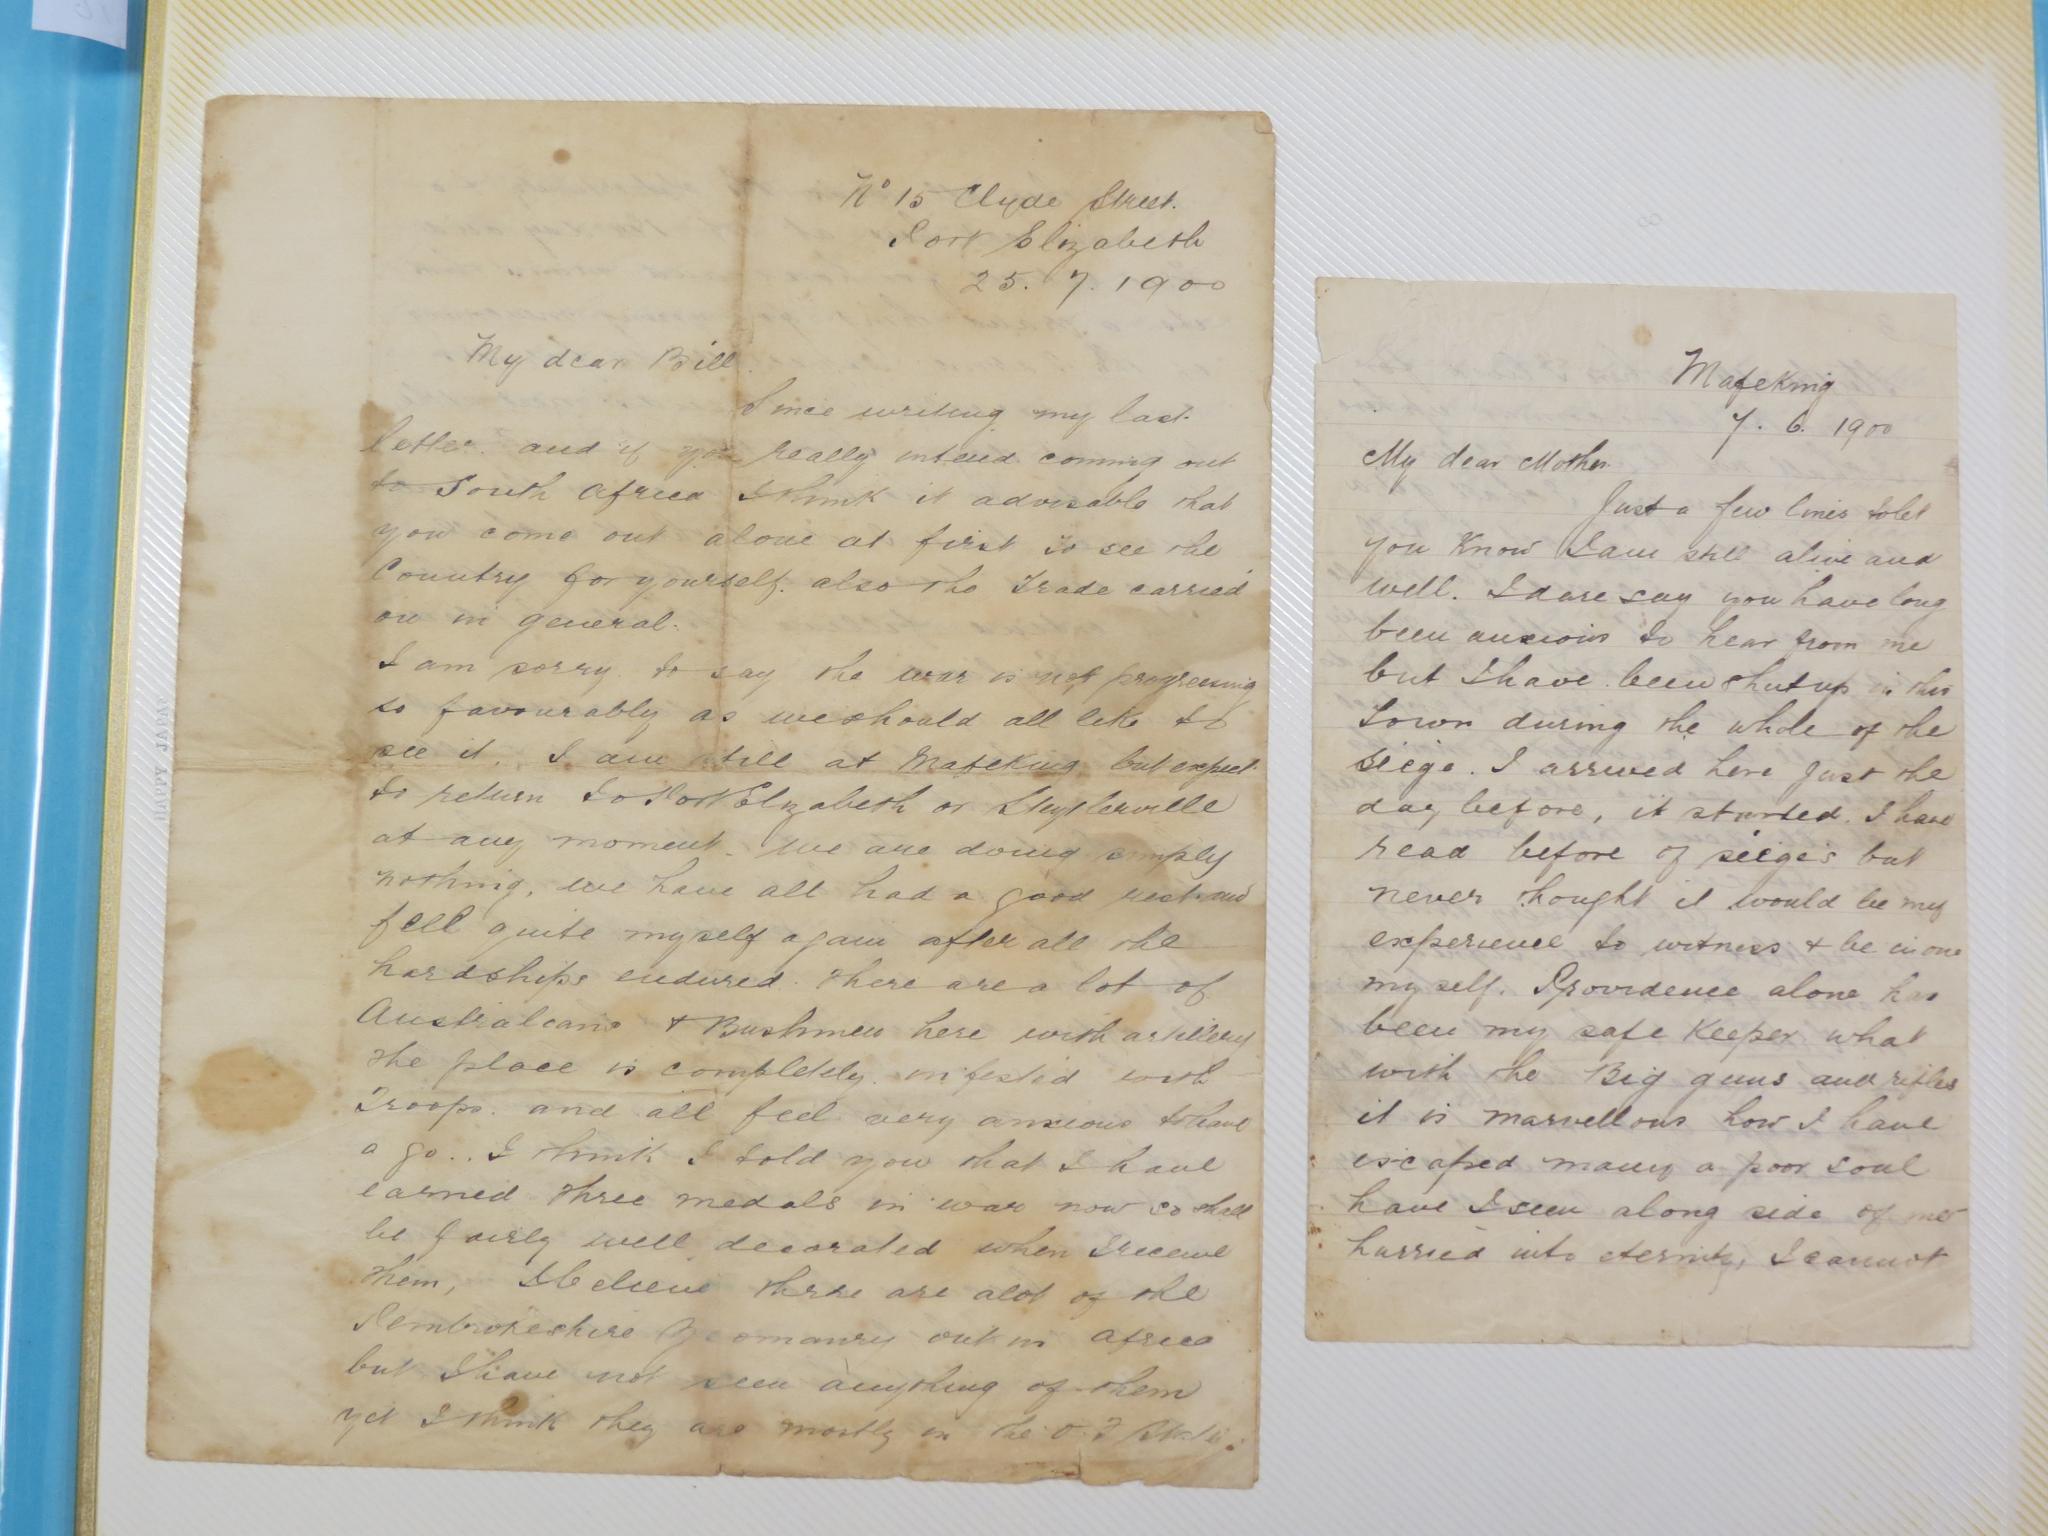 No 15 Clyde Street.
Port Elizabeth
25. 7. 1900
My dear Bill.
Since writing my last
letter. and if you really intend coming out
to South Africa I think it advisable that
you come out alone at first to see the
Country for yourself. also the Trade carried
on in general.
I am sorry to say the war is not progressing
so favourably as we should all like to
see it. I am still at Mafeking but expect
to return to Port Elizabeth or
at any moment. We are doing simply
nothing, we have all had a good rest and
feel quite myself again after all the
hardships endured. There are a lot of
Australians + Bushmen here with artillery
the place is completely infested with
Troops. and all feel very anxious to have
a go.. I think I told you that I have
earned three medals in war now so shall
be fairly well decorated when I receive
them, I believe there are alot of the
Pembrokeshire Yeomanry out in Africa
but I have not seen anything of them
yet I think they are mostly in the O. F.
Mafeking
7. 6. 1900
My dear Mother.
Just a few lines to let
you know I am still alive and
well. I dare say you have long
been anxious to hear from me
but I have been shut up in this
Town during the whole of the
seige. I arrived here just the
day before, it started. I have
read before of seiges but
never thought it would be my
experience to witness + be in one
myself. Providence alone has
been my safe Keeper what
with the Big guns and rifles
it is marvellous how I have
escaped many a poor soul
have I seen along side of me
hurried into eternity, I cannot
HAPPY JAPAN